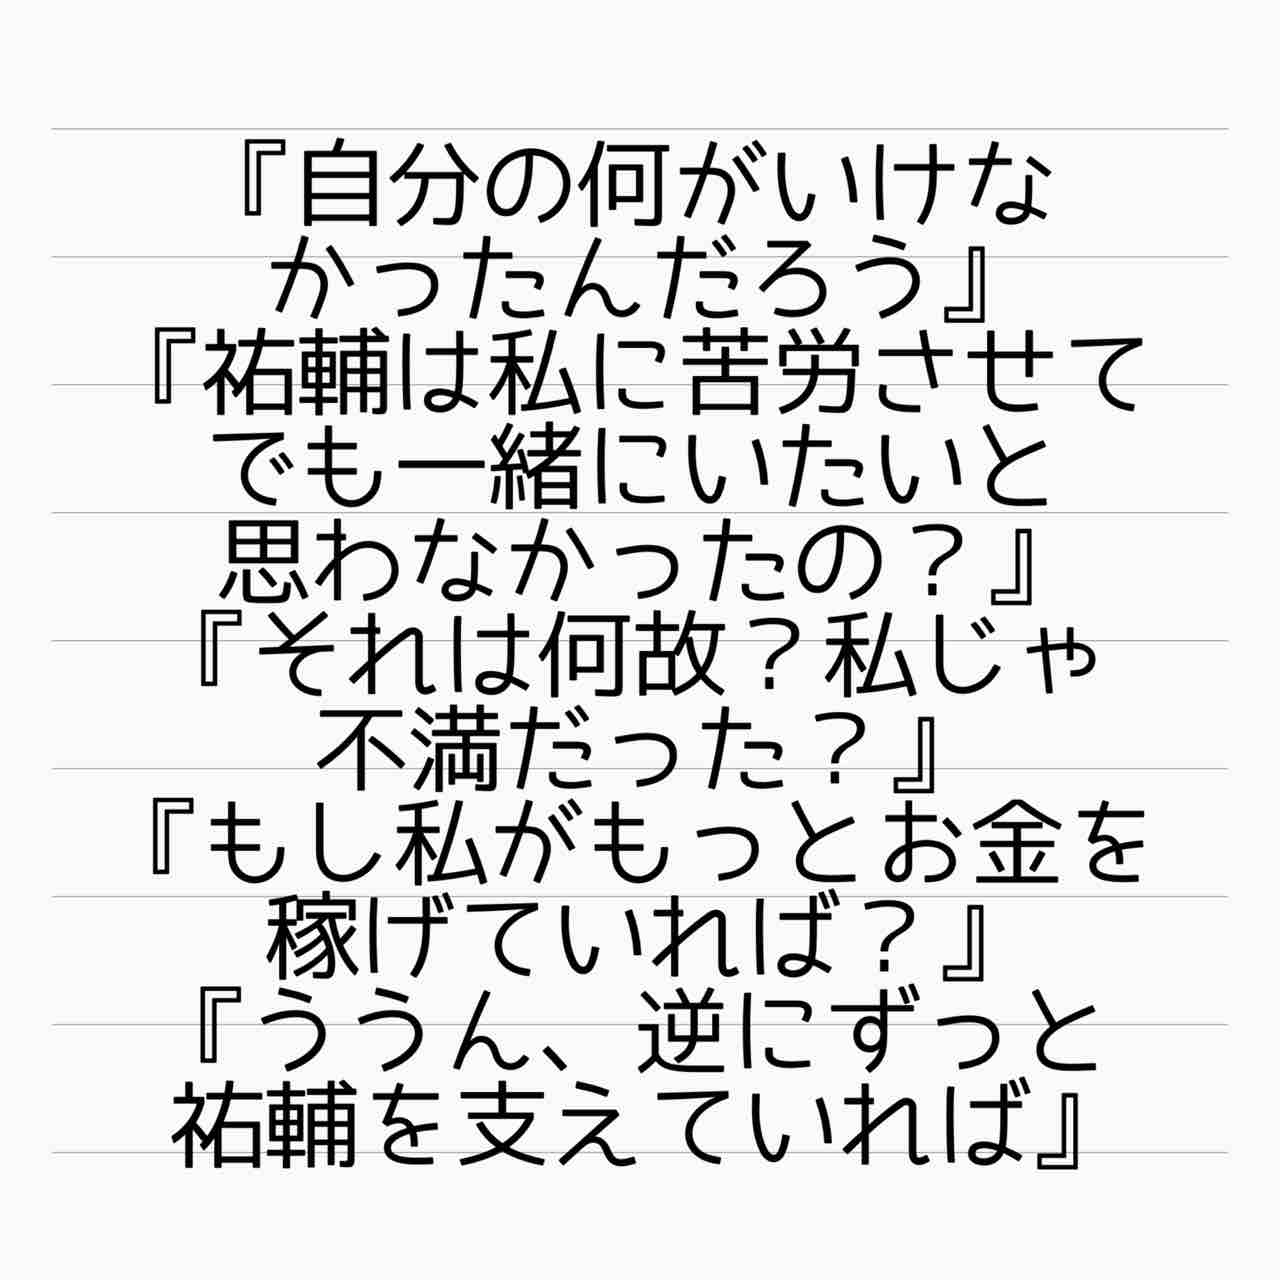 『自分の何がいけな
かったんだろう』
『祐輔は私に苦労させて
でも一緒にいたいと
思わなかったの？』
『それは何故？私じゃ
不満だった？』
『もし私がもっとお金を
稼げていれば？』
『ううん、逆にずっと
祐輔を支えていれば』